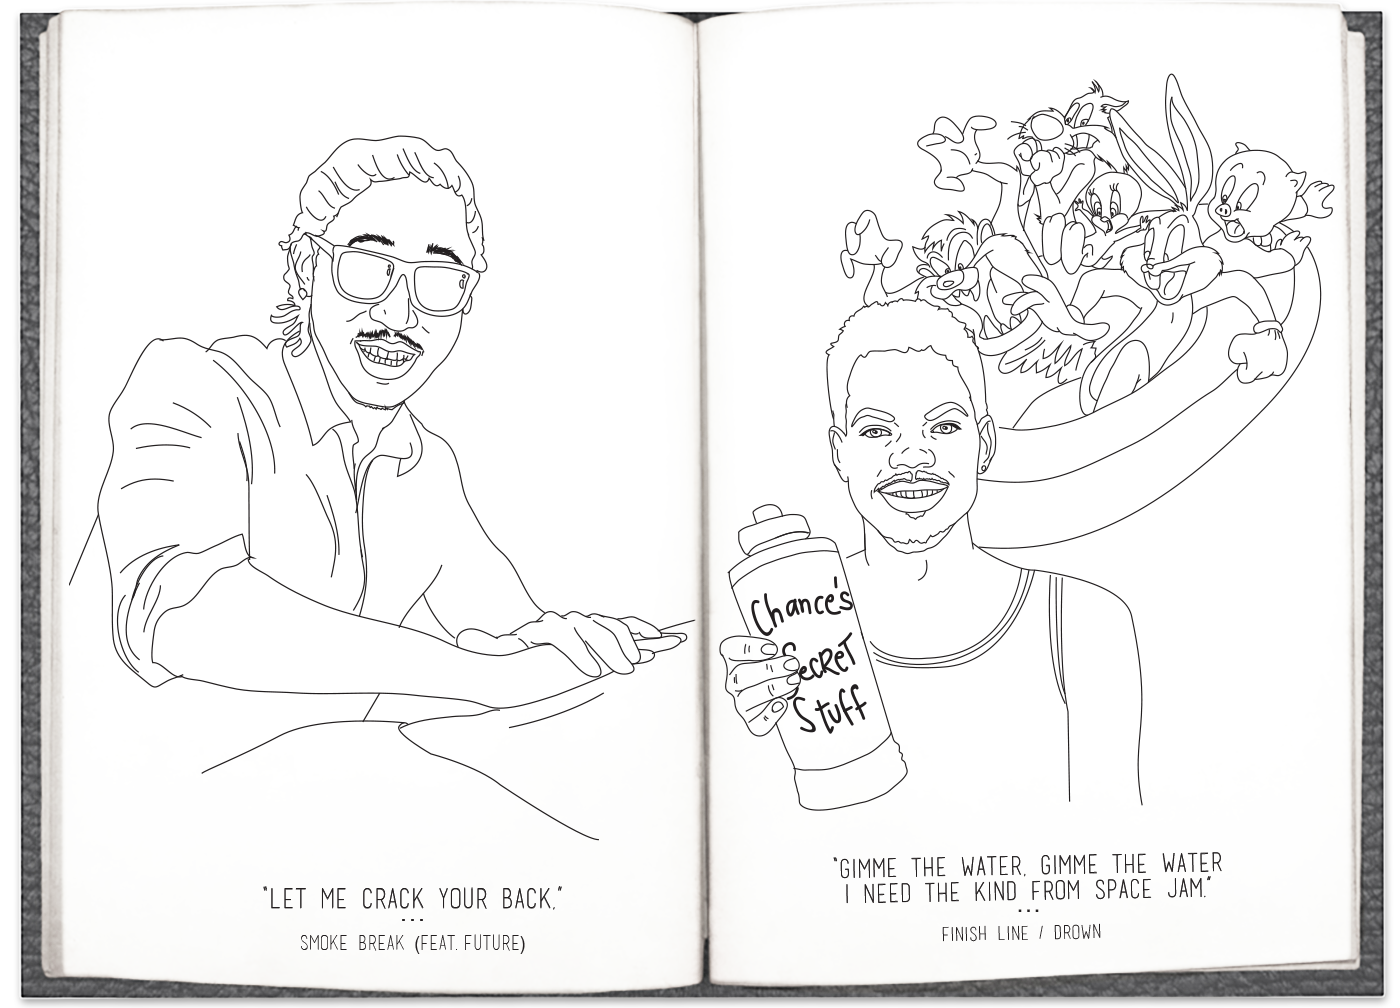 "LET ME CRACK YOUR BACK,"
...
SMOKE BREAK (FEAT. FUTURE)
Chance's
Secret
Stuff
"GIMME THE WATER, GIMME THE WATER
I NEED THE KIND FROM SPACE JAM."
...
FINISH LINE / DROWN